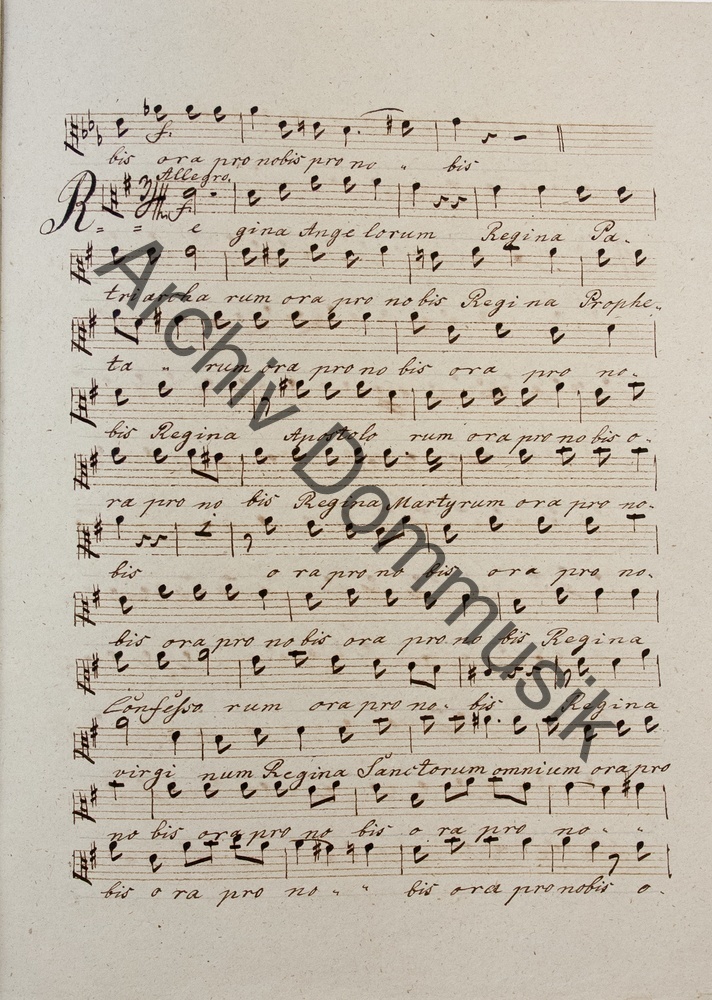 bis ora pro nobis pro no " bis
Allegro.
R = = e gina Ange lorum Regina Pa-
triarcha rum ora pro nobis Regina Prophe-
ta " rum ora pro no bis ora pro no-
bis Regina Apostolo rum ora pro nobis o-
ra pro no bis Regina Martyrum ora pro no-
bis o ra pro no bis ora pro no-
bis ora pro nobis ora pro no bis Regina
Confesso rum ora pro no- bis Regina
virgi num Regina Sanctorum omnium ora pro
no bis ora pro no bis o ra pro no - -
bis o ra pro no - " bis ora pro nobis o-
Archiv Dommusik